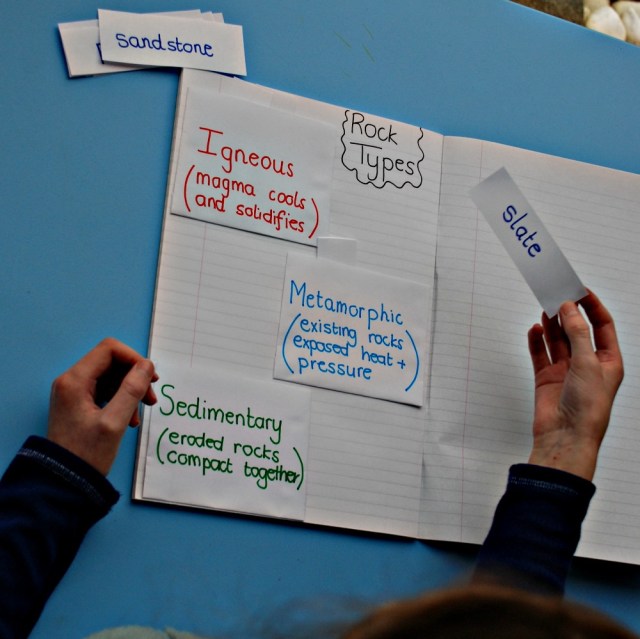 sandstone
Rock
Types
Igneous
(magma cools
and solidifies)
slate
Metamorphic
(existing rocks
exposed heat +
pressure)
Sedimentary
(eroded rocks
compact together)